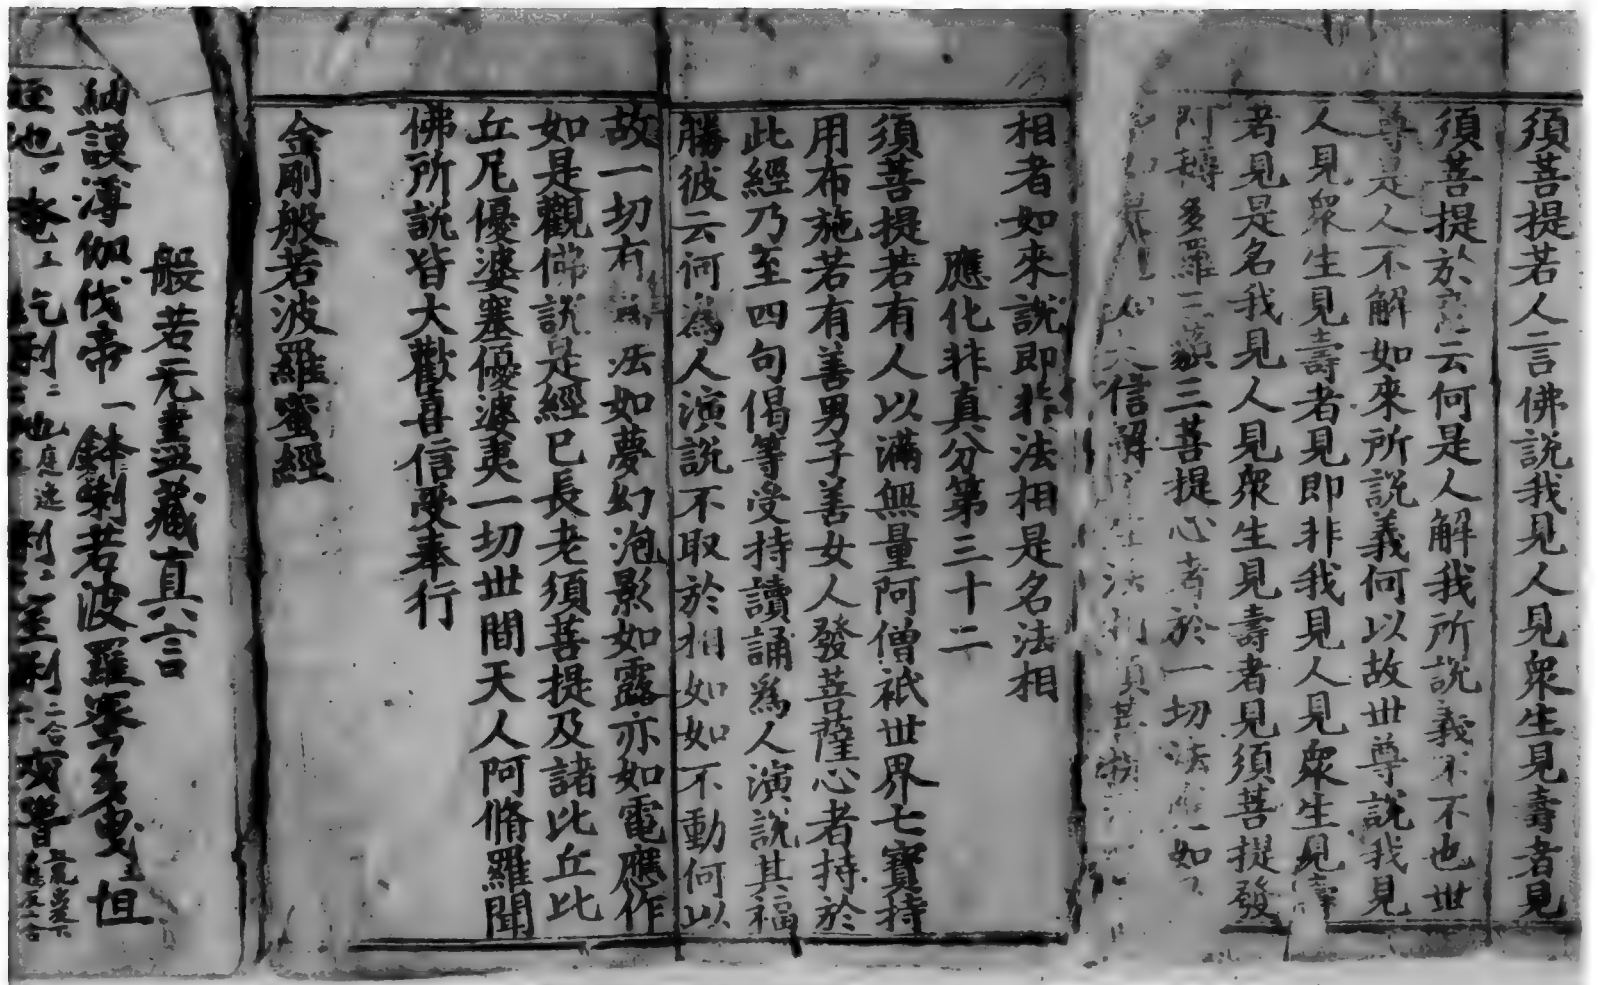 須菩提若人言佛說我見人見衆生見壽者見
須菩提於意云何是人解我所說義不不也世
尊是人不解如來所說義何以故世尊說我見
人見衆生見壽者見即非我見人見衆生見壽
者見是名我見人見衆生見壽者見須菩提發
阿耨多羅三藐三菩提心者於一切法應如
信解 法相須菩
相者如來說即非法相是名法相
應化非真分第三十二
須菩提若有人以滿無量阿僧祇世界七寶持
用布施若有善男子善女人發菩薩心者持於
此經乃至四句偈等受持讀誦爲人演說其福
勝彼云何爲人演說不取於相如如不動何以
故一切有爲法如夢幻泡影如露亦如電應作
如是觀佛說是經已長老須菩提及諸比丘比
丘尼優婆塞優婆夷一切世間天人阿脩羅聞
佛所說皆大歡喜信受奉行
金剛般若波羅蜜經
般若无盡藏真言
納謨薄伽伐帝一鉢唎若波羅蜜多曳二怛
姪也唵 紇利二地 利二室利二合